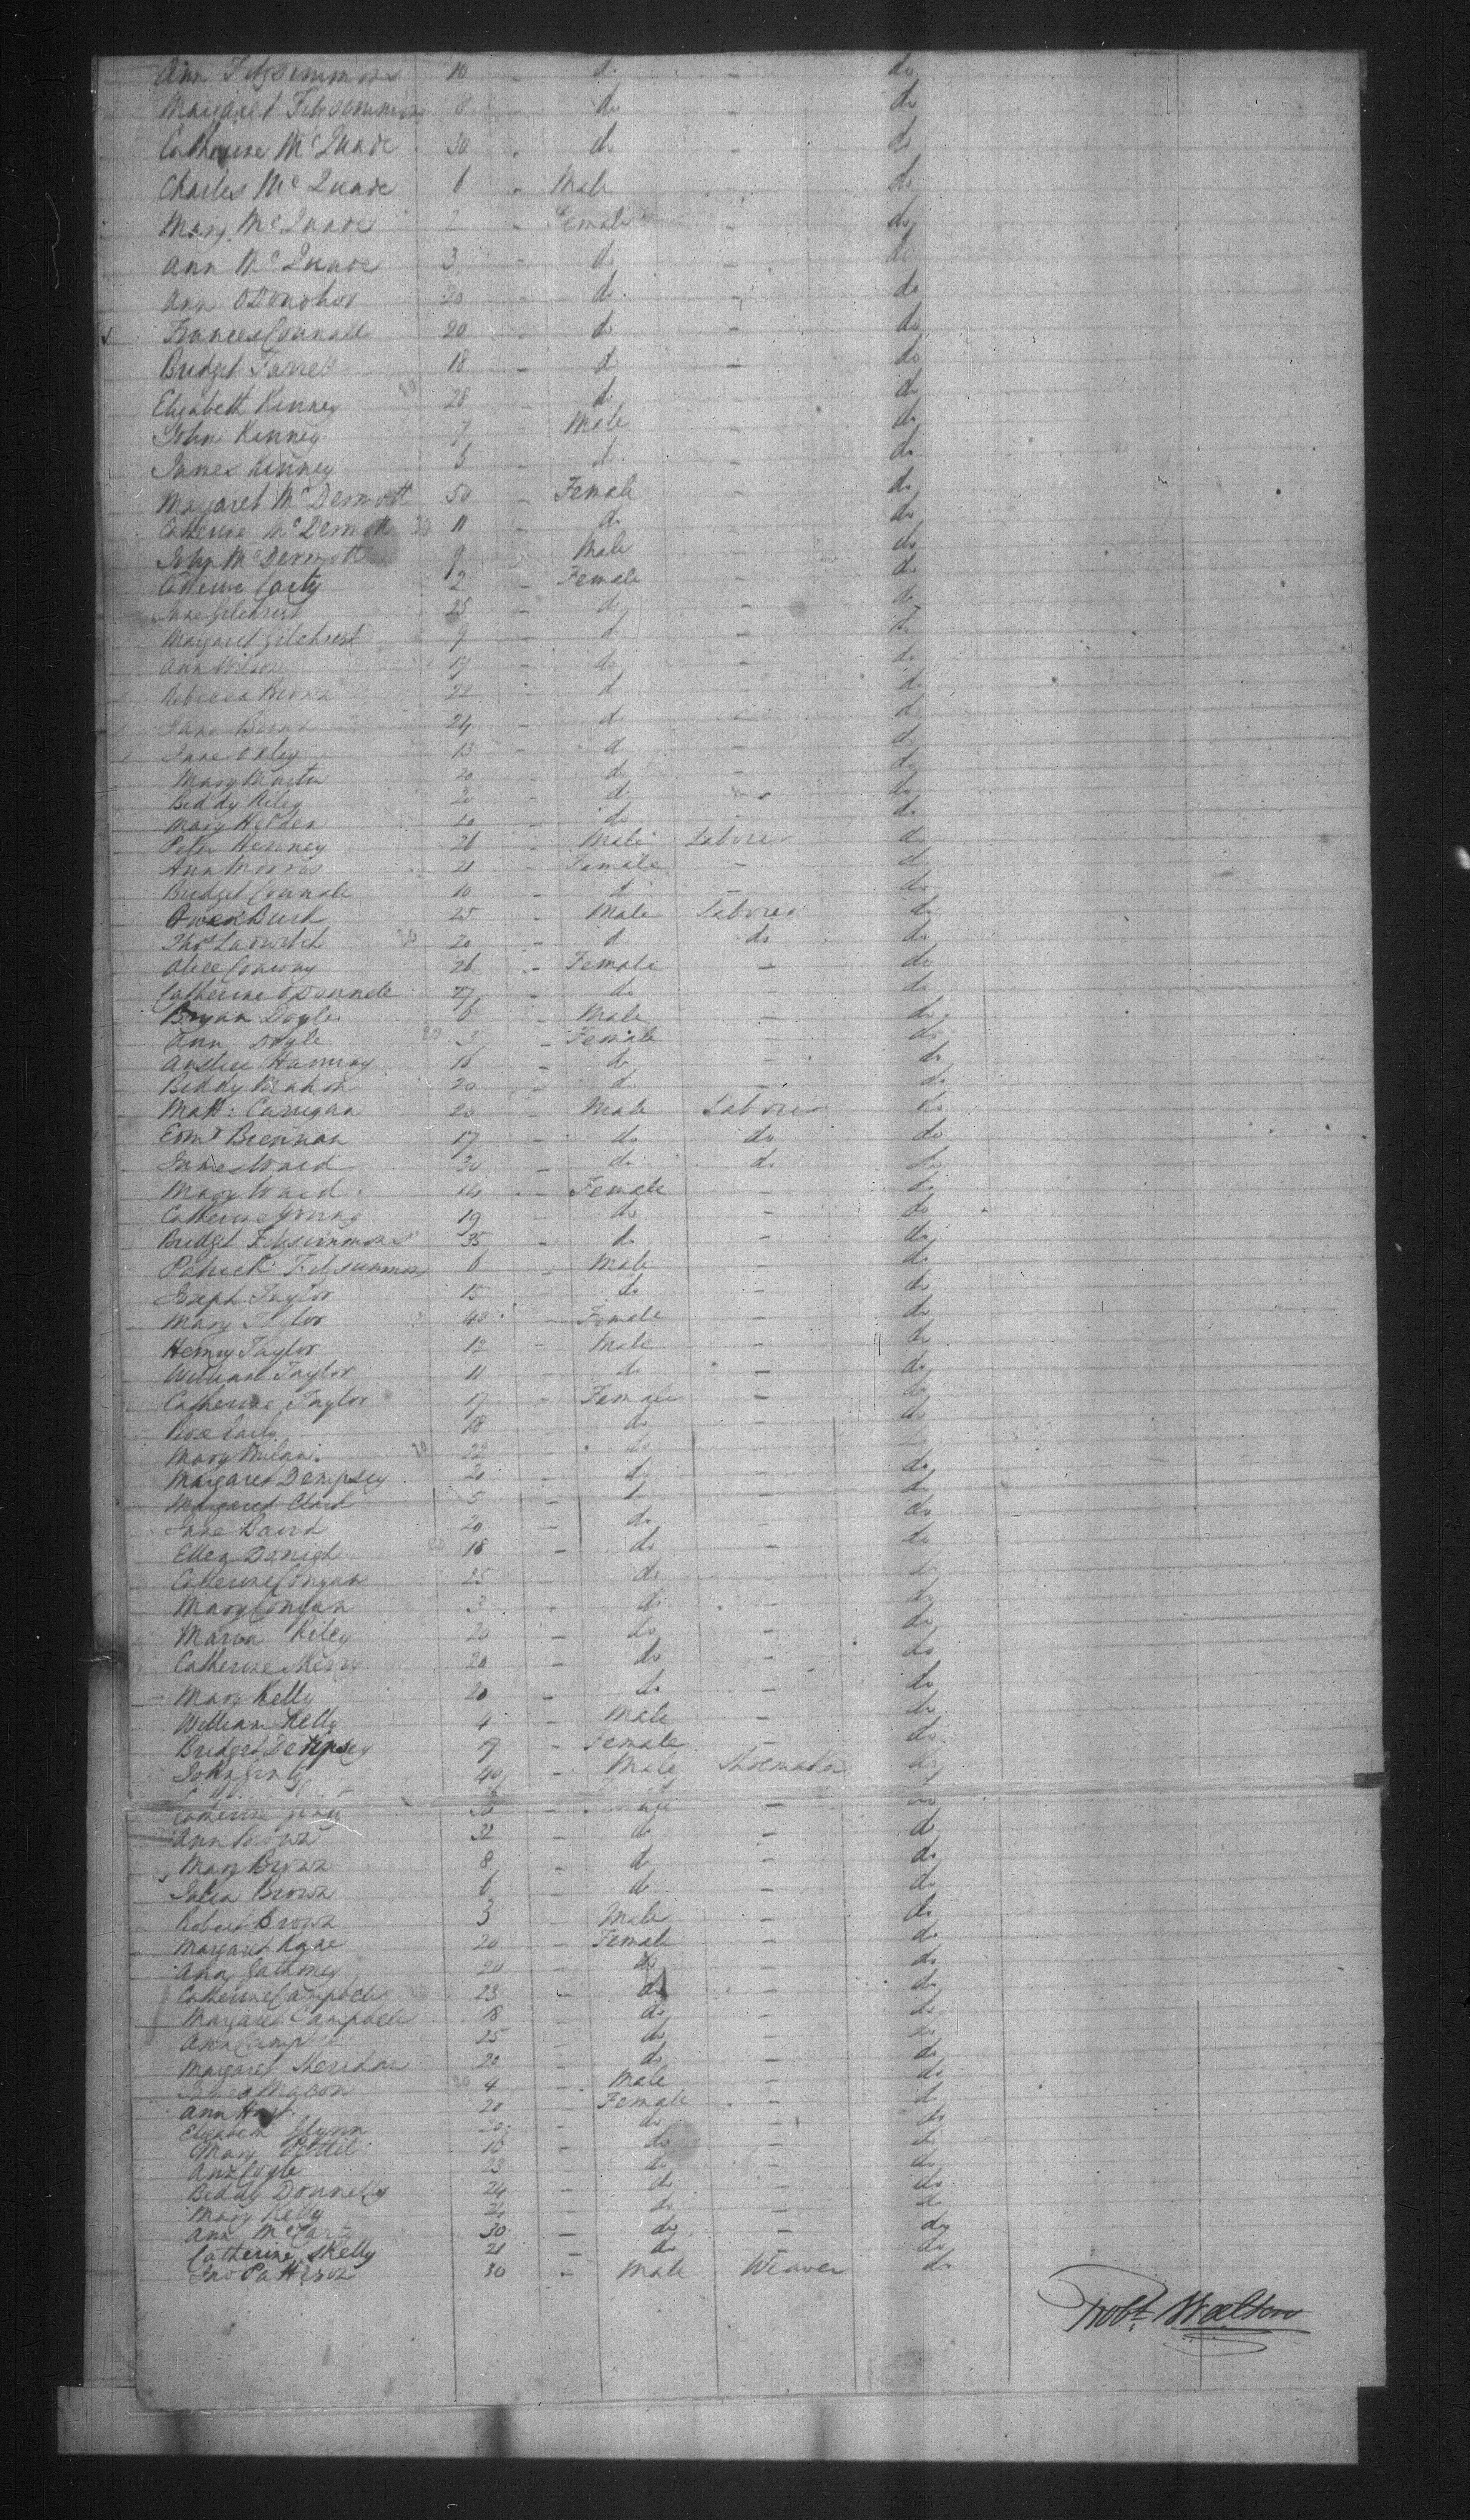 Ann Fitzsimmons 10 - do - do
Margaret Fitzsimmons 8 - do - do
Catherine McQuade 30 - do - do
Charles McQuade 6 - Male - do
Mary McQuade 2 - Female - do
Ann McQuade 3 - do - do
Ann ODonohoe 20 - do - do
Frances Connall 20 - do - do
Bridget Farrel 18 - do - do
Elizabeth Kinney 28 - do - do
John Kinney 7 - Male - do
James Kinney 5 - do - do
Margaret McDermott 50 - Female - do
Catherine McDermott 11 - do do
John McDermott 9 Male do
Catherine Carty 2 - Female - do
Jane Gilchrist 25 - do - do
Margaret Gilchrist 9 - do - do
Ann Wilson 17 - do - do
Rebecca Brown 22 - do do
Jane Brown 24 - do - do
Jane Oxley 13 - do - do
Mary Martin 20 - do - do
Biddy Riley 20 - do - do
Mary Holden 20 - do - do
Peter Henney 26 - Male Laborer do
Ann Morris 21 - Female - do
Bridget Connale 10 - do - do
Owen Burk 25 - Male Laborer do
Thos 20 - do do do
Alice Conway 26 - Female - do
Catherine ODonnele 27 - do - do
Bryan Doyle 6 - Male - do
Ann Doyle 3 - Female - do
Hanway 16 - do - do
Biddy Mahon 20 - do - do
Matt: Carrigan 20 - Male Laborer do
Edmd Brennan 17 - do do do
James Ward 30 - do do do
Mary Ward 14 - Female - do
Catherine Young 19 - do - do
Bridget Fitzsimmons 35 - do - do
Patrick Fitzsimmons 6 - Male - do
Joseph Taylor 15 - do - do
Mary Taylor 40 - Female - do
Henry Taylor 12 - Male - do
William Taylor 11 - do - do
Catherine Taylor 17 - Female - do
Rose 18 do - do
Mary 22 - do - do
Margaret Dempsey 20 - do - do
Margaret Clark 5 - do - do
Jane Baird 20 - do - do
Ellen 18 - do - do
Catherine Congan 25 - do - do
Mary Congan 3 - do - do
Maria Riley 20 - do - do
Catherine Sherry 20 - do - do
Mary Kelly 20 - do - do
William Kelly 4 - Male - do
Bridget Dempsey 17 - Female - do
John 40 - Male Shoemaker do
Catherine - - do
Ann Brown 32 - do - do
Mary Brown 8 - do - do
Julia Brown 6 - do - do
Robert Brown 3 Male - do
Margaret Kane 20 - Female - do
Ann 20 - do - do
Catherine Campbell 23 - do - do
Margaret Campbell 18 - do - do
Ann Camp 25 - do - do
Margaret Sheridan 20 - do - do
James Macon 4 - Male - do
Ann Hart 20 - Female - do
Elizabeth Glynn 20 - do - do
Mary 16 - do - do
Ann Coyle 23 - do - do
Biddy Donnelly 24 - do - do
Mary Kelly 21 - do - do
Ann McCarty 30 - do - do
Catherine Skelly 21 - do - do
Jno Patterson 30 - Male Weaver do
Robt. Walton